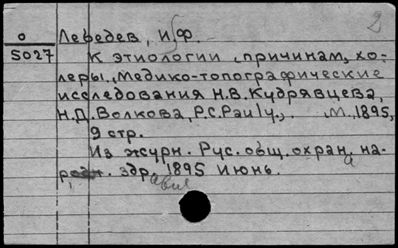 2
о
5027
Лебедев, И.Ф.
К этиологии, причинам, хо-
леры. Медико-топографические
исследования Н.В. Кудрявцева,
Н.Д. Волкова, Р.С. Pauly. М., 1895,
9 стр.
Из журн. Рус. общ. охран. на-
родн. здр., 1895 июнь.